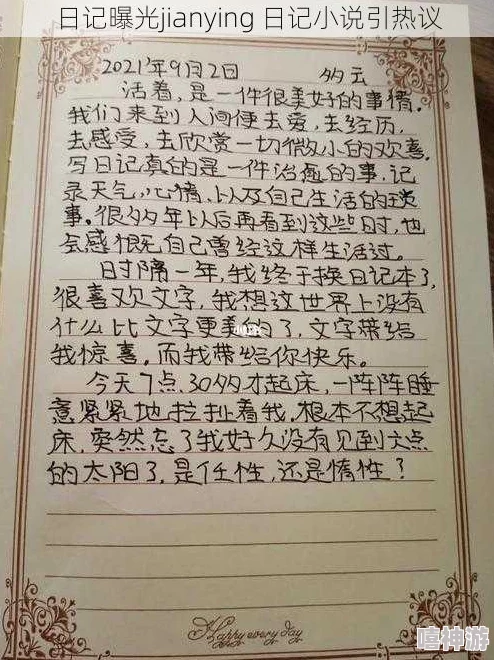 日记曝光jianying 日记小说引热议
2021年9月2日 多云
活着，是一件很美好的事情。
我们来到人间便去爱，去经历，
去感受，去欣赏一切微小的欢喜。
写日记真的是一件治愈的事，记
录天气，心情，以及自己生活的琐
事。很多年以后再看到这些时，也
会感慨自己曾经这样生活过。
时隔一年，我终于换日记本了，
很喜欢文字，我想这世界上没有
什么比文字更美的了，文字带给
我惊喜。而我带给你快乐。
今天7点，30多才起床，一阵阵睡
意紧紧地拉扯着我，根本不想起
床，突然忘了我好久没有见到六点
的太阳了，是任性，还是惰性？
Happy every day
嘻神游